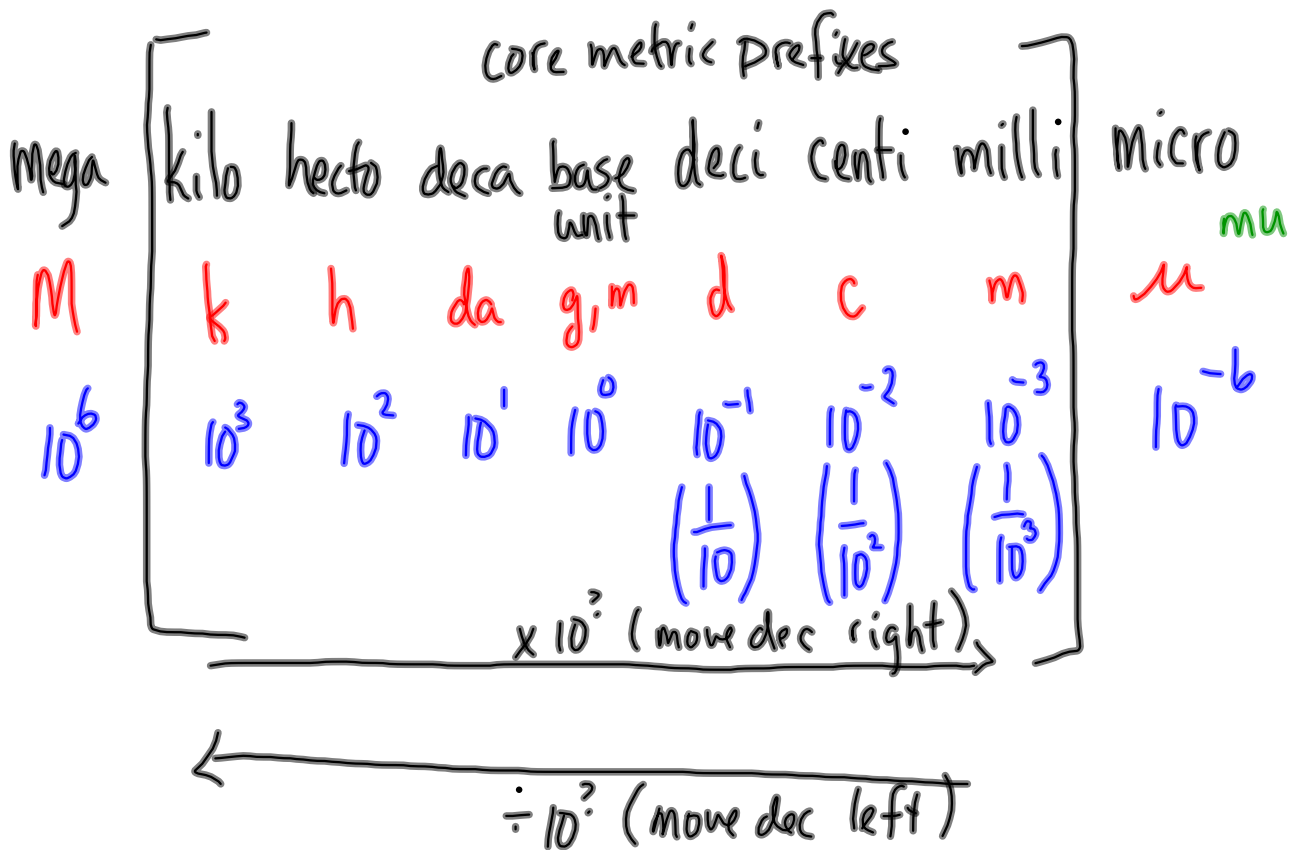 core metric prefixes
mega kilo hecto deca base unit deci centi milli micro
mu
M k h da g, m d c m μ
10⁶ 10³ 10² 10¹ 10⁰ 10⁻¹ 10⁻² 10⁻³ 10⁻⁶
(1/10) (1/10²) (1/10³)
x 10^? (move dec right)
÷ 10^? (move dec left)